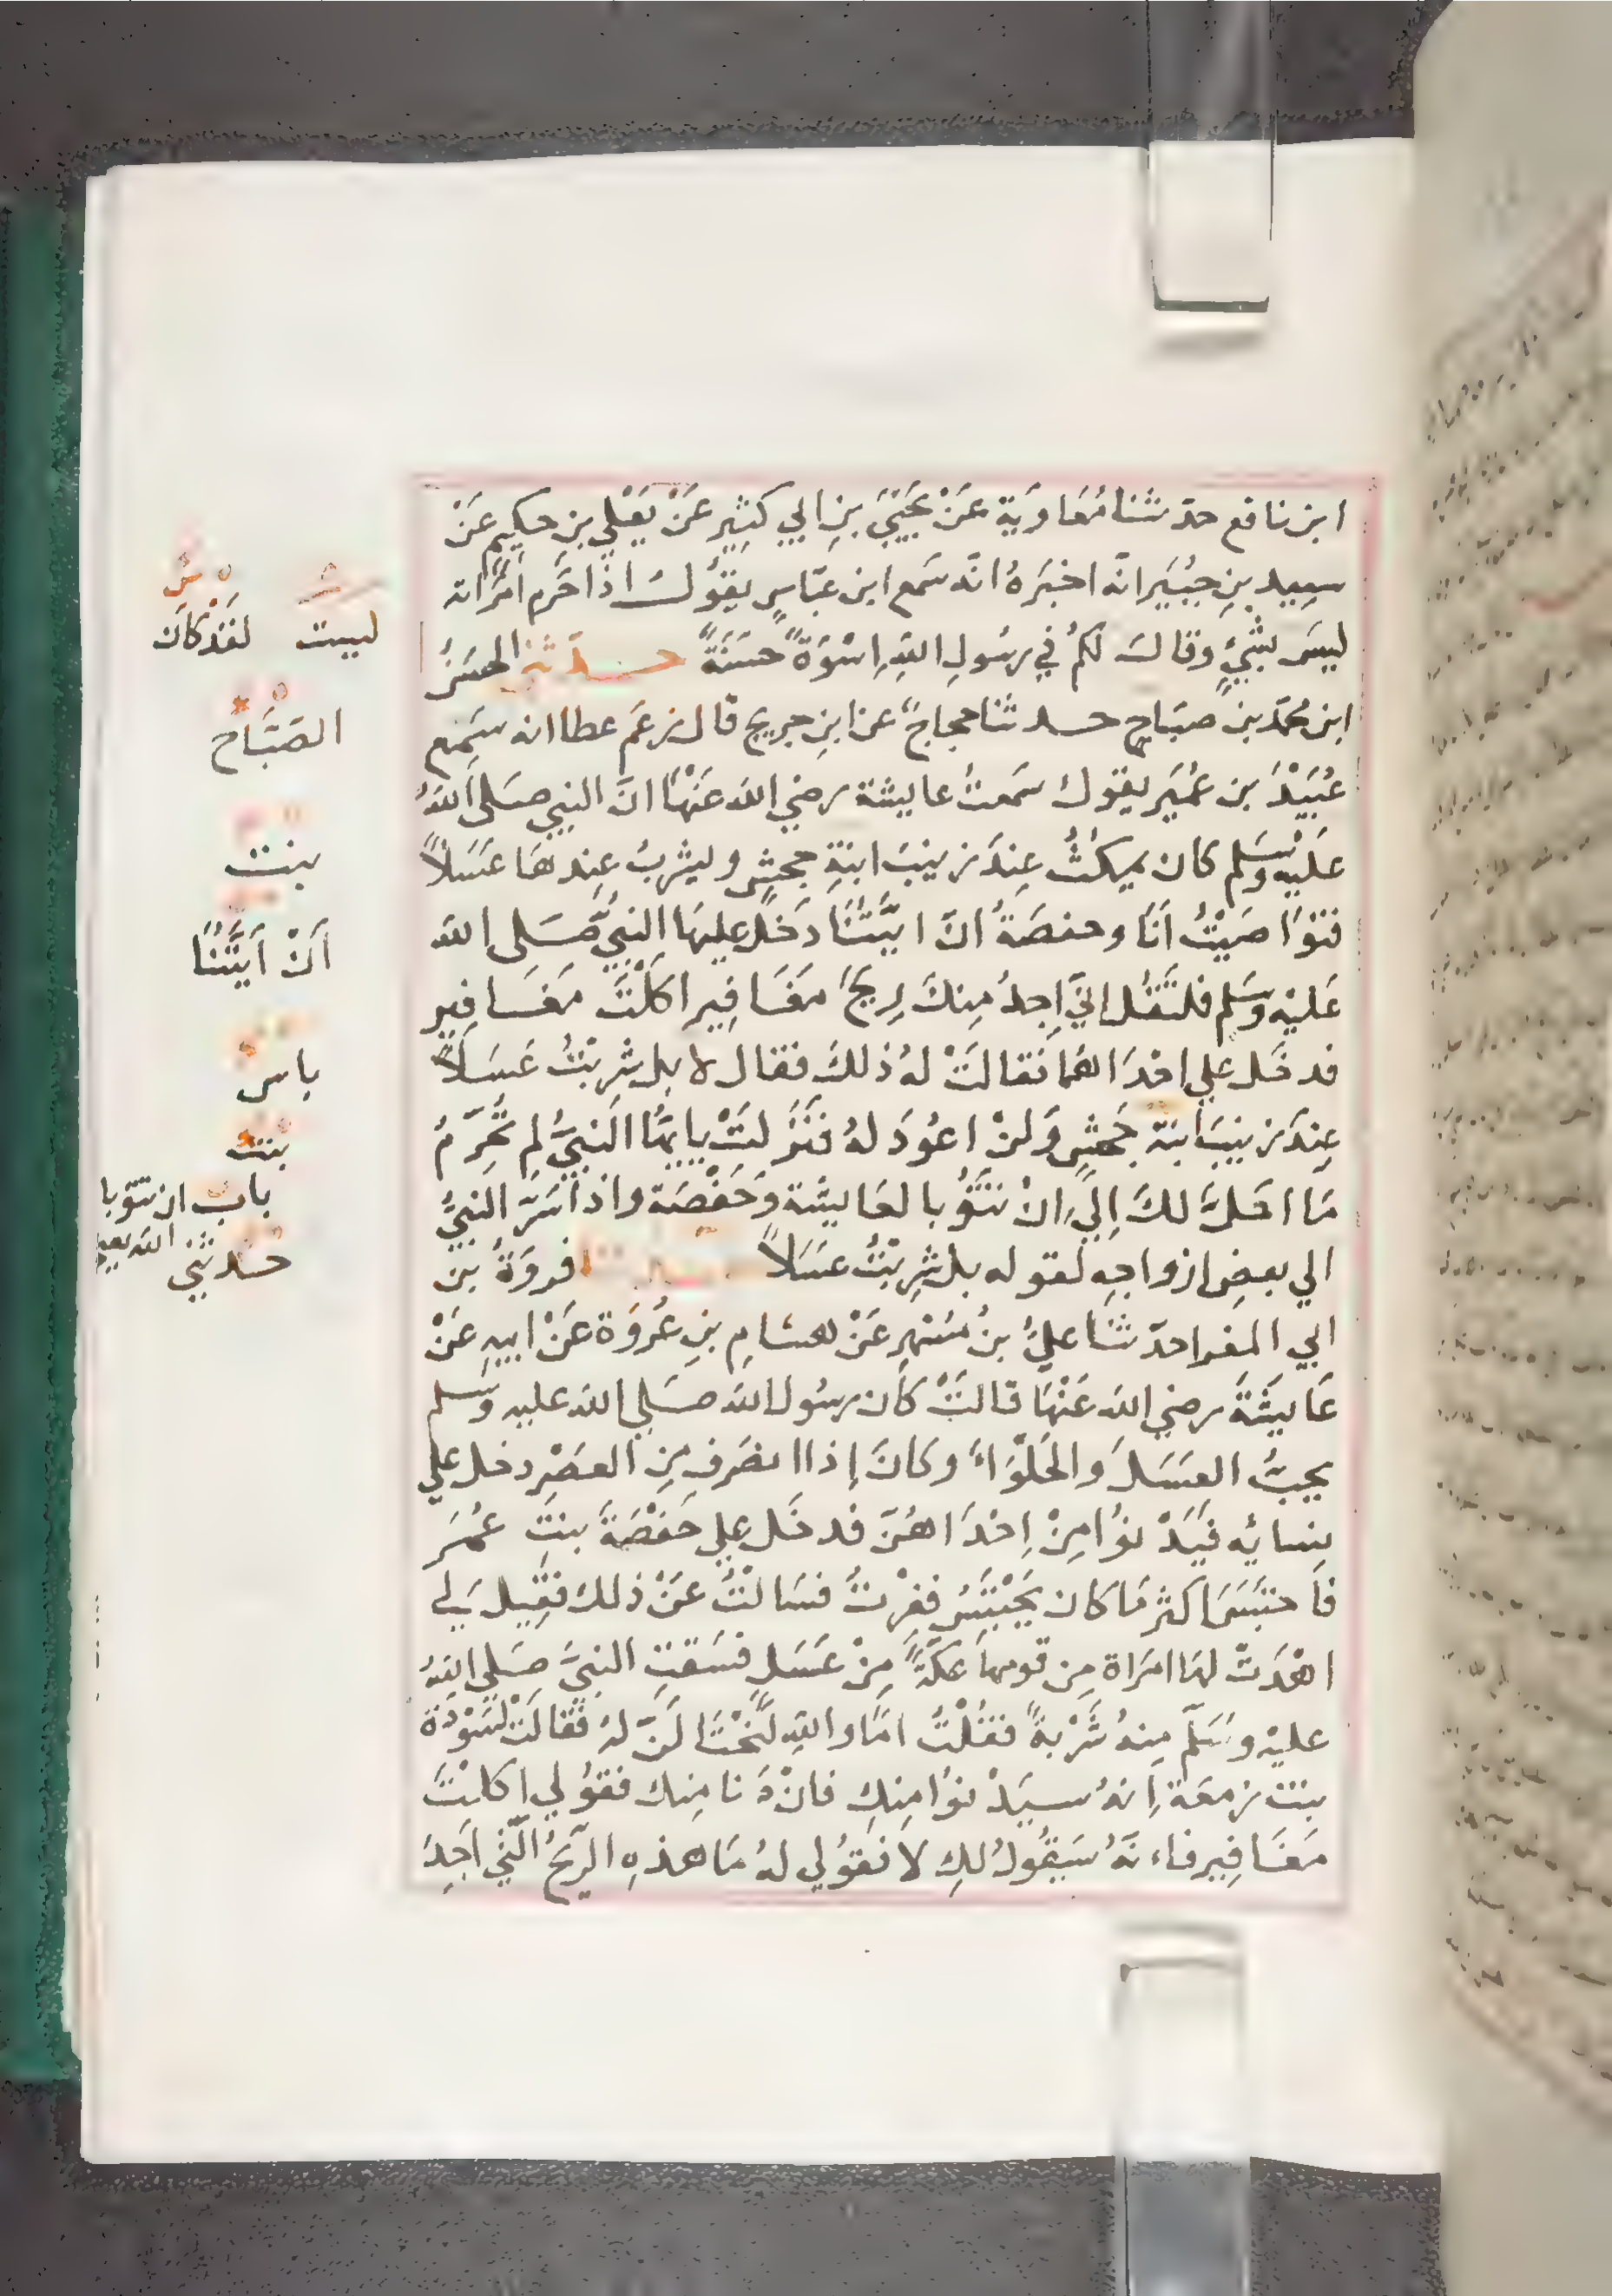 ابن نافع حدثنا مُعَاوِيَة عَنْ يَحْيَى بنِ ابي كثِيرٍ عَنْ يَعْلي بنِ حكيمٍ عَنْ
سعِيد بنِ جبُيَر انّه اخبَرهُ انّه سَمع ابن عبّاسٍ يقوُل اذا حَرم امرَاته
ليسَ بشئٍ وقال لكمُ في رسُولِ اللهِ اسْوَةٌ حسَنَةٌ حدثنا الحسَنُ
ابن محمّد بن صبَاحٍ حدثنا حجاج عن ابنِ جريج قال زعَم عطا انه سَمِع
عُبَيْدَ بن عُمَيرٍ يقول سَمعتُ عايشة رضي الله عَنْهَا انّ النبي صلى اللهُ
عَليْه وسَلم كان يمكثُ عِندَ زينبَ ابنةِ جحشٍ ويشربُ عِندهَا عَسَلاً
فتوَاصَيْتُ انَا وحفصَةُ انّ ايَّتُنَا دَخَل عليهَا النبيُّ صَلى الله
عَليْه وسَلم فلتَقُل انّي اجِدُ مِنكَ رِيحَ مغَافِير اكلْتَ مغَافِير
فدخَل علي احْدَاهمَا فقالَتْ لهُ ذلكَ فقال لا بل شرِبْتُ عَسَلاً
عِندَ زينبَ ابنة جَحْشٍ وَلنْ اعوُدَ لهُ فنَزَلتْ يايهَا النبيُّ لم تحُرّمُ
مَا احَلّ لكَ اِلي اِنْ تتُوبا لعَايشة وَحَفْصَة واذ اسَرّ النبيُّ
الي بعضِ ازواجِهِ لقوله بل شرِبْتُ عسَلاً فروَةُ بن
ابي المغرا حدّثنا عليُّ بنُ مسْهرٍ عَنْ هشامِ بنِ عُروَة عَنْ ابيهِ عَنْ
عَايشَةَ رضي الله عَنْهَا قالتْ كان رسُول الله صلي الله عليه وسَلم
يحبُّ العسَلَ وَالحَلوَاءَ وكانَ إذا انصَرفَ مِن العصْرِ دخل علي
نِسايه فيَدْنوُا مِنْ إحْدَاهُنّ فدخَل علي حفْصَةَ بنتِ عُمَر
فاحتبَسَ اكثر مَا كان يَحْتبِسُ فغِرْتُ فسَالتُ عَنْ ذلك فقِيل لي
اهْدَتْ لهَا امرَاة مِن قومِهَا عكّةً مِنْ عَسَلٍ فسَقتِ النبيَّ صلي اللهُ
عليْه وسَلّم مِنهُ شَرْبةً فقُلْتُ امَا واللهِ لنَحْتَالَنّ لهُ فقالَتْ لسَوْدَة
بنت زمعَة اِنهُ سيَدْنوُا مِنكِ فان دَنا مِنك فقوُلي اكلتَ
مغَافِير فاءنهُ سَيقوُلُ لكِ لا فقوُلي لهُ مَا هذِهِ الريحُ الّتي اَجِدُ
ليست لقَدْ كانَ
الصَبَّاح
بنت
اَنْ اَيَّتُنا
باس
بنت
باب ان تتوبا
الله
حدثني